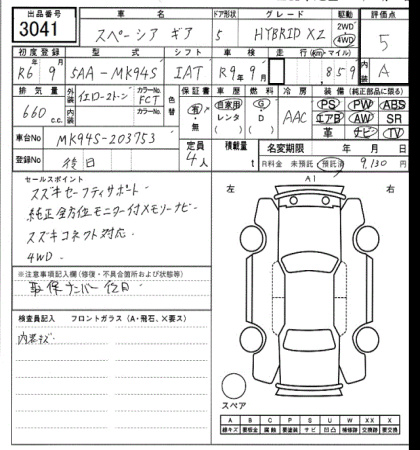 出品番号 車名 ドア形状 グレード 駆動 評価点
3041 スペーシア ギア 5 HYBRID XZ 2WD 4WD 5
初度登録 型式 シフト 車検 走行(km・マイル) 内装
R6年 9月 5AA-MK94S IAT R9年 9月 859 A
排気量 外装色 カラーNo. 色替 保証書 車歴 燃料 冷房 装備(純正部品に限る)
660 c.c. 2トン FCT 有・無 自家用 レンタ G D AAC PS PW ABS
内装色 カラーNo. エアB AW SR
革 ナビ TV
車台No MK94S-203753 定員 4人 積載量 t 名変期限 年 月 日
登録No 後日 R料金 未預託 預託済 9,130 円
セールスポイント
スズキセーフティサポート
純正全方位モニター付メモリーナビ
スズキコネクト対応
4WD
左 A1 右
※注意事項記入欄(修復・不具合箇所および状態等)
取保ナンバー後日
検査員記入 フロントガラス(A・飛石、X要ス)
内装キズ
スペア
A B C P S U W XX X
線キズ 要板金 腐蝕 要塗装 サビ 凹凸 補修跡 交換跡 要交換